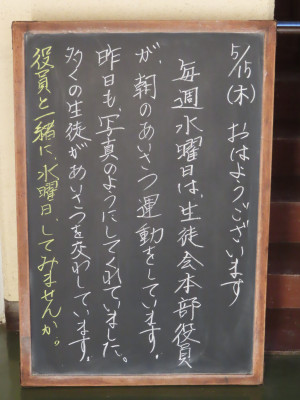 5/15(木) おはようございます
毎週水曜日は、生徒会本部役員
が、朝のあいさつ運動をしています。
昨日も、写真のようにしてくれていました。
多くの生徒があいさつを交わしています。
役員と一緒に、水曜日、してみませんか。